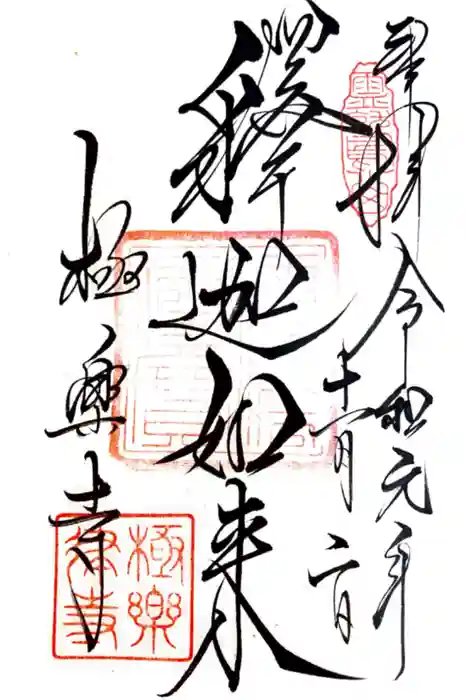 奉拝
令和元年
十一月二日
釋迦如来
極楽寺
極樂
律寺